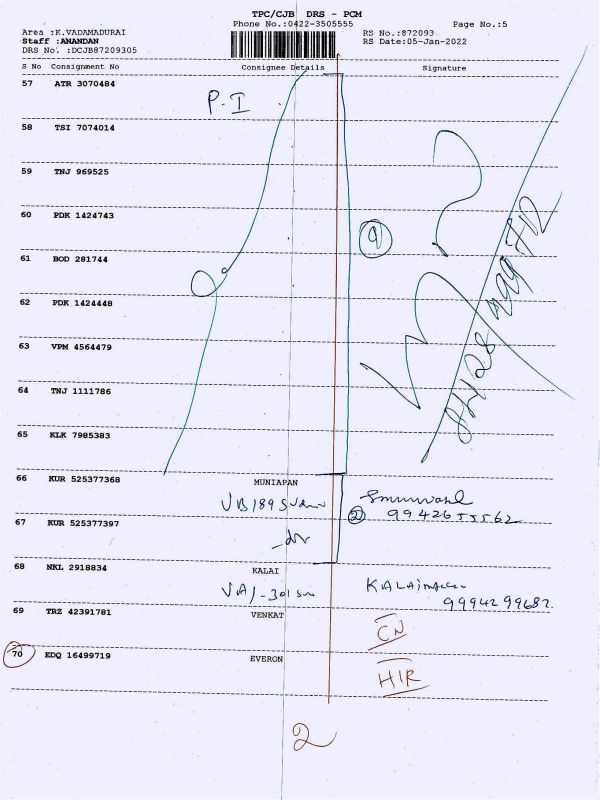 TPC/CJB DRS - PCM
Phone No.:0422-3505555
Page No.:5
Area :K.VADAMADURAI
Staff :ANANDAN
DRS No. :DCJB87209305
RS No.:872093
RS Date:05-Jan-2022
S No Consignment No Consignee Details Signature
57 ATR 3070484
P.I
58 TSI 7074014
59 TNJ 969525
60 PDK 1424743
9
61 BOD 281744
62 PDK 1424448
63 VPM 4564479
64 TNJ 1111786
65 KLK 7985383
66 KUR 525377368 MUNIAPAN
2 9942655562
67 KUR 525377397
68 NKL 2918834 KALAI
9994299682
69 TRZ 42391781 VENKAT
CN
70 EDQ 16499719 EVERON
HIR
2